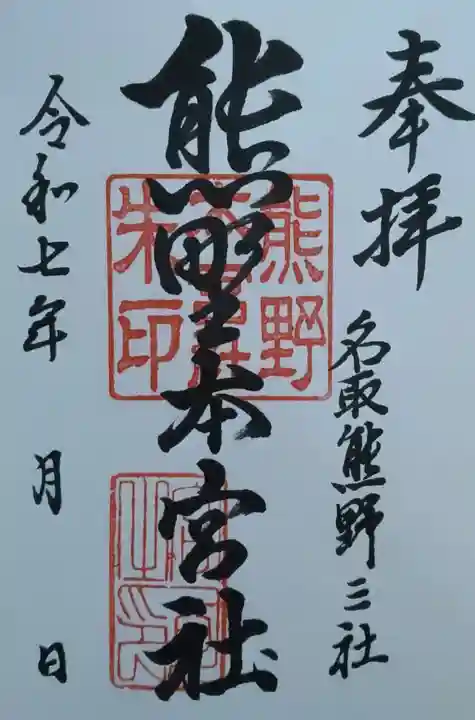 奉拝
名取熊野三社
熊野本宮社
熊野
朱印
令和七年 月 日